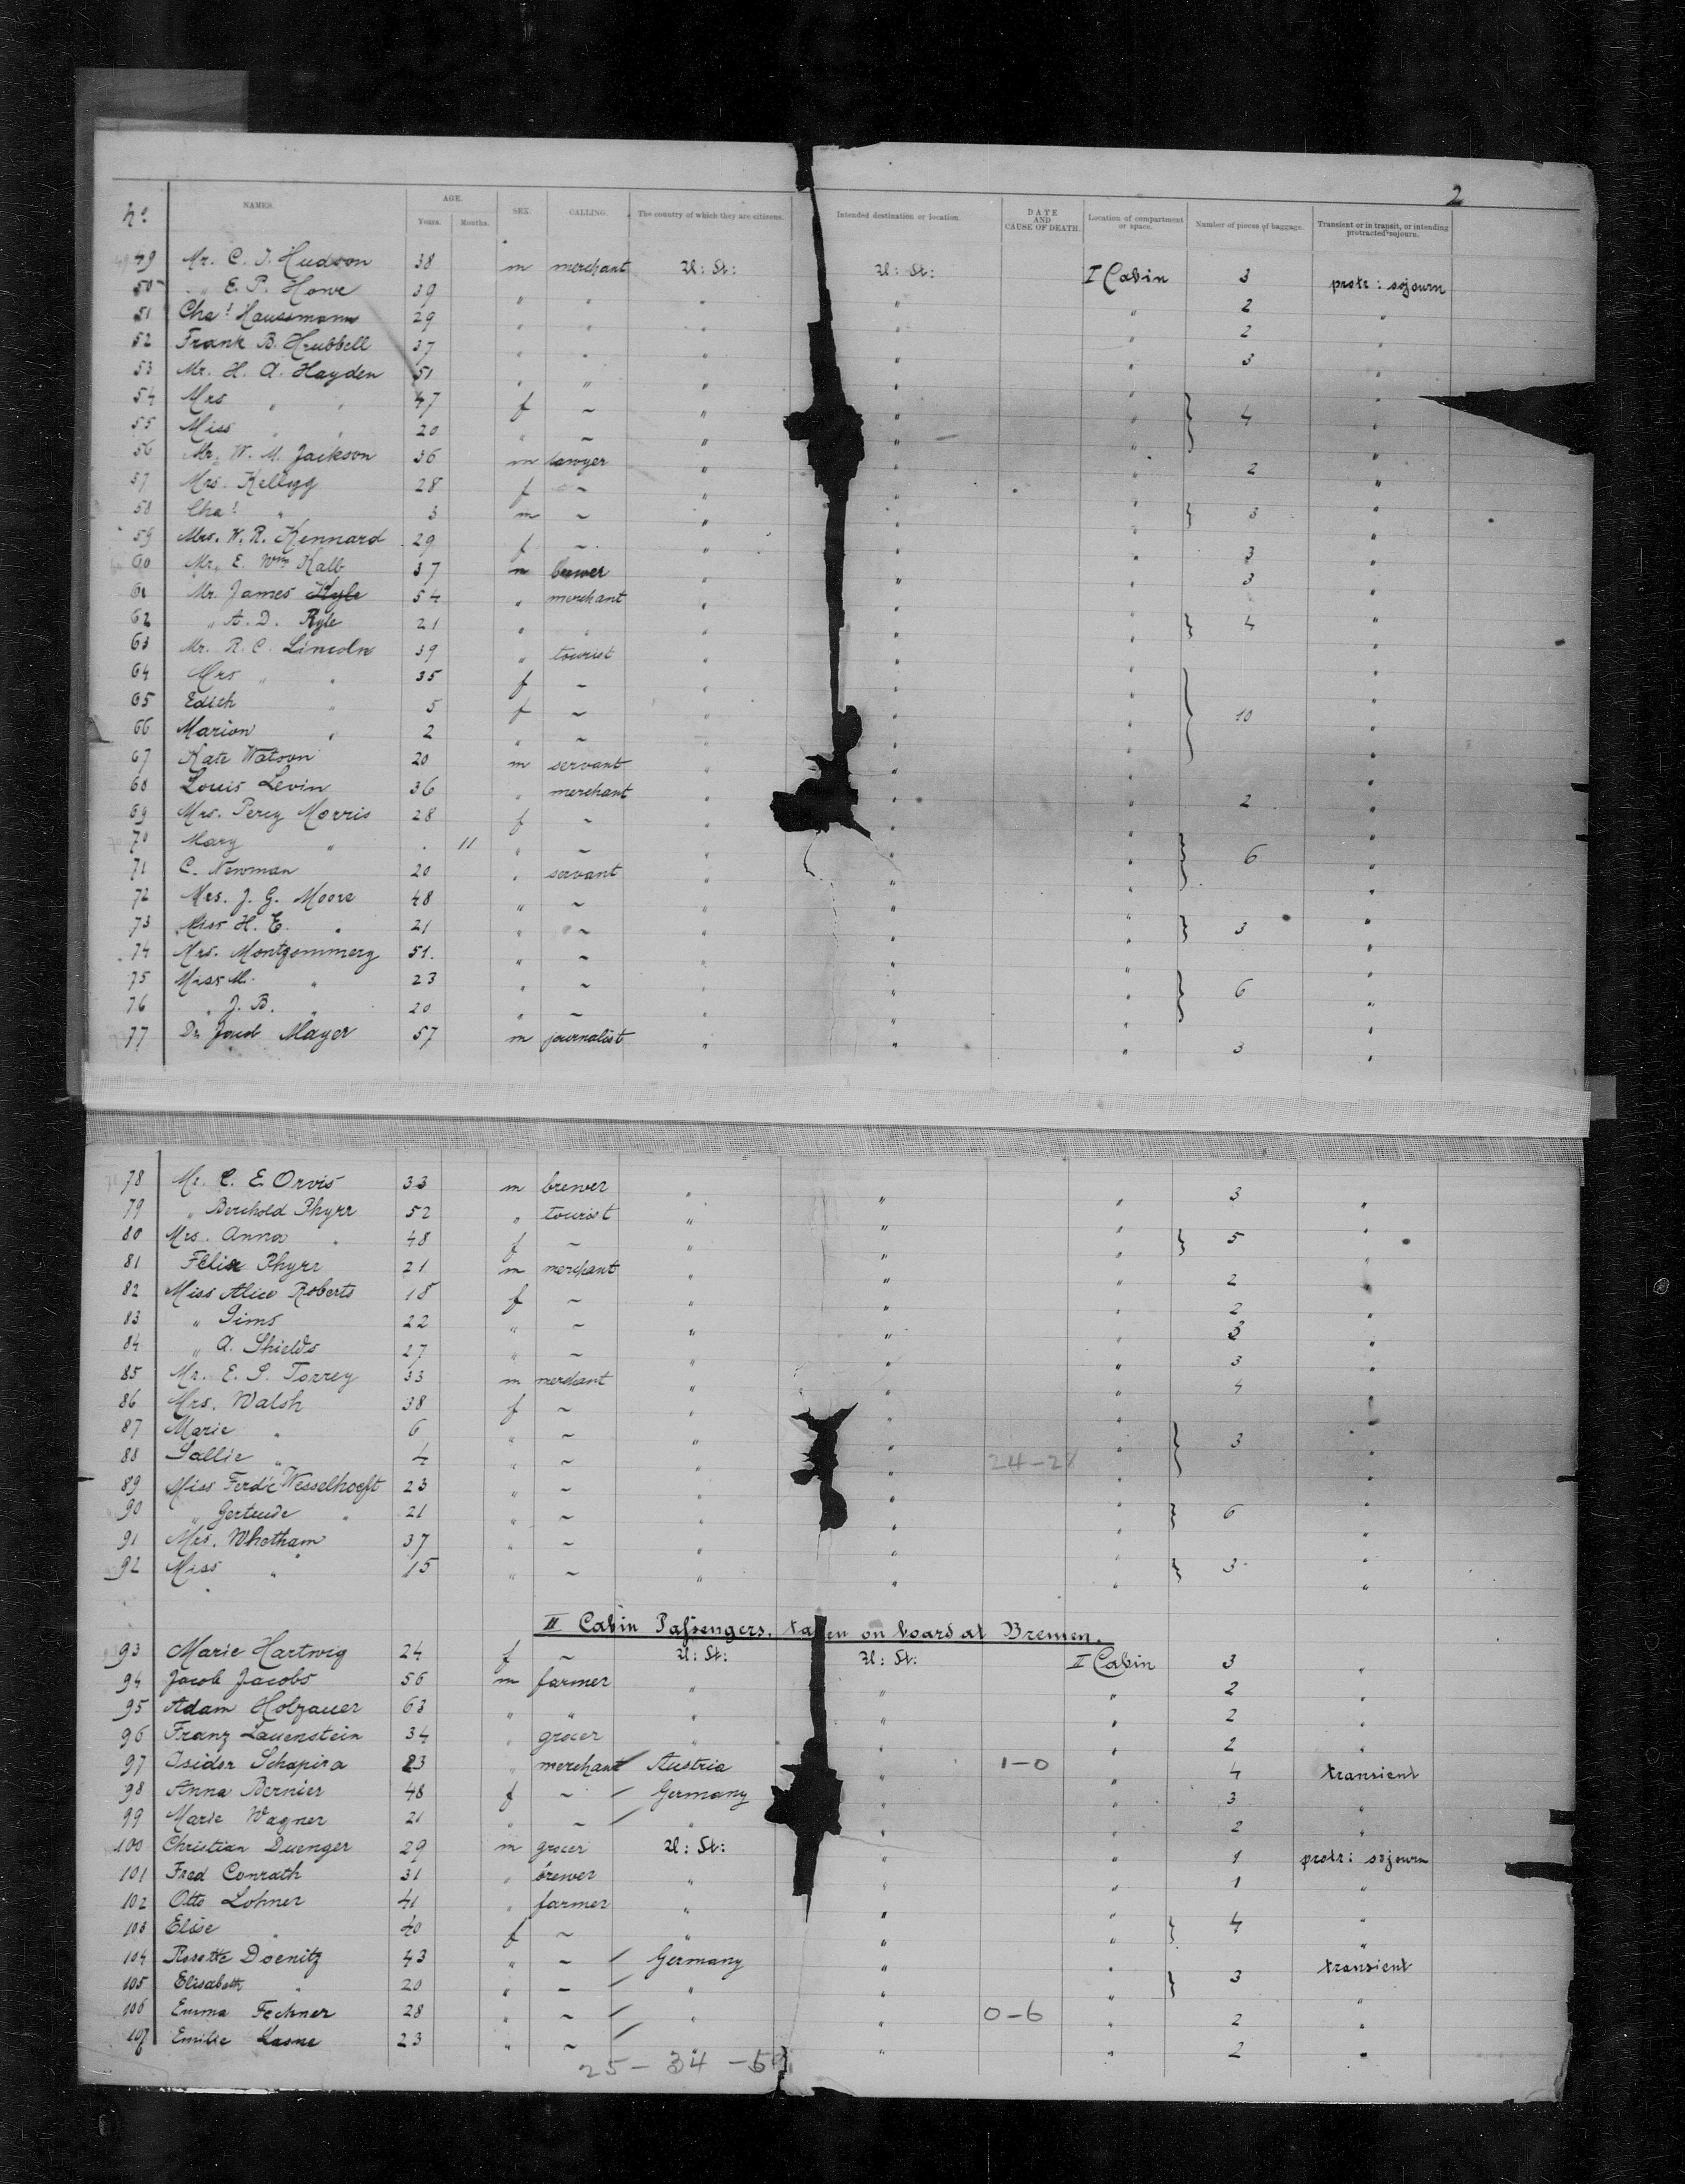 2
No. NAMES. AGE. Years. Months. SEX. CALLING. The country of which they are citizens. Intended destination or location. DATE AND CAUSE OF DEATH. Location of compartment or space. Number of pieces of baggage. Transient or in transit, or intending protracted sojourn.
49 Mr. C. J. Hudson 38 m merchant U: St: U: St: I Cabin 3 protr: sojourn
50 " E. P. Howe 39 " " " " " 2 "
51 Chas Haussmann 29 " " " " " 2 "
52 Frank B. Hrubbell 37 " " " " " 3 "
53 Mr. H. A. Hayden 51 " " " " " "
54 Mrs " " 47 f ~ " " " 4 "
55 Miss " " 20 " ~ " " " "
56 Mr. W. M. Jackson 36 m lawyer " " " 2 "
57 Mrs. Kellogg 28 f ~ " " " "
58 Chas " 3 m ~ " " " 3 "
59 Mrs. W. R. Kennard 29 f ~ " " " 3 "
60 Mr. E. Wm Kalb 37 m brewer " " " 3 "
61 Mr. James Kyle 54 " merchant " " " "
62 " A. D. Ryle 21 " " " " " 4 "
63 Mr. R. C. Lincoln 39 " tourist " " " "
64 Mrs " " 35 f ~ " " " "
65 Edith " 5 f ~ " " " 10 "
66 Marion " 2 " ~ " " " "
67 Kate Watson 20 m servant " " " "
68 Louis Levin 36 " merchant " " " 2 "
69 Mrs. Percy Morris 28 f ~ " " " "
70 Mary " . 11 " ~ " " " 6 "
71 C. Newman 20 " servant " " " "
72 Mrs. J. G. Moore 48 " ~ " " " "
73 Miss H. E. " 21 " ~ " " " 3 "
74 Mrs. Montgommery 51. " ~ " " " "
75 Miss M. " 23 " ~ " " " 6 "
76 " J. B. " 20 " ~ " " " "
77 Dr. Mayer 57 m journalist " " " 3 "
78 Mr. C. E. Orvis 33 m brewer " " " 3 "
79 " Berthold Rhyrr 52 " tourist " " " "
80 Mrs. Anna " 48 f ~ " " " 5 "
81 Felix Rhyrr 21 m merchant " " " 2 "
82 Miss Alice Roberts 18 f ~ " " " 2 "
83 " Sims 22 " ~ " " " 3 "
84 " A. Shields 27 " ~ " " " 3 "
85 Mr. E. S. Torrey 33 m merchant " " " 4 "
86 Mrs. Walsh 38 f ~ " " " "
87 Marie " 6 " ~ " " " 3 "
88 Sallie " 4 " ~ " " 24-28 " "
89 Miss Ferdie Wesselhoeft 23 " ~ " " " "
90 " Gertrude " 21 " ~ " " " 6 "
91 Mrs. Whetham 37 " ~ " " " "
92 Miss " 15 " ~ " " " 3 "
II Cabin Passengers, taken on board at Bremen.
93 Marie Hartwig 24 f ~ U: St: U: St: II Cabin 3 "
94 Jacob Jacobs 56 m farmer " " " 2 "
95 Adam Holzauer 63 " " " " " 2 "
96 Franz Lauenstein 34 " grocer " " " 2 "
97 Isidor Schapira 23 " merchant Austria " 1-0 " 4 transient
98 Anna Bernier 48 f ~ Germany " " 3 "
99 Marie Wagner 21 " ~ " " " 2 "
100 Christian Duenger 29 m grocer U: St: " " 1 protr: sojourn
101 Fred Conrath 31 " brewer " " " 1 "
102 Otto Lohner 41 " farmer " " " "
103 Elise " 40 f ~ " " " 4 "
104 Rosette Doenitz 43 " ~ Germany " " transient
105 Elisabeth " 20 " ~ " " " 3 "
106 Emma Fechner 28 " ~ " " 0-6 " 2 "
107 Emilie Lasne 23 " ~ " " " 2 "
25-34-59